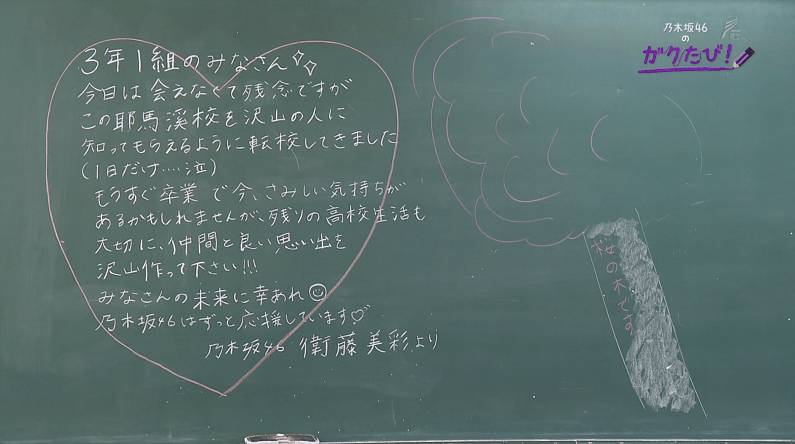 3年1組のみなさん
今日は会えなくて残念ですが
この耶馬溪校を沢山の人に
知ってもらえるように転校してきました
(1日だけ....泣)
もうすぐ卒業で今、さみしい気持ちが
あるかもしれませんが、残りの高校生活も
大切に、仲間と良い思い出を
沢山作って下さい!!!
みなさんの未来に幸あれ☺
乃木坂46はずっと応援しています♡
乃木坂46 衛藤美彩より
桜の木です
乃木坂46
の
ガクたび!